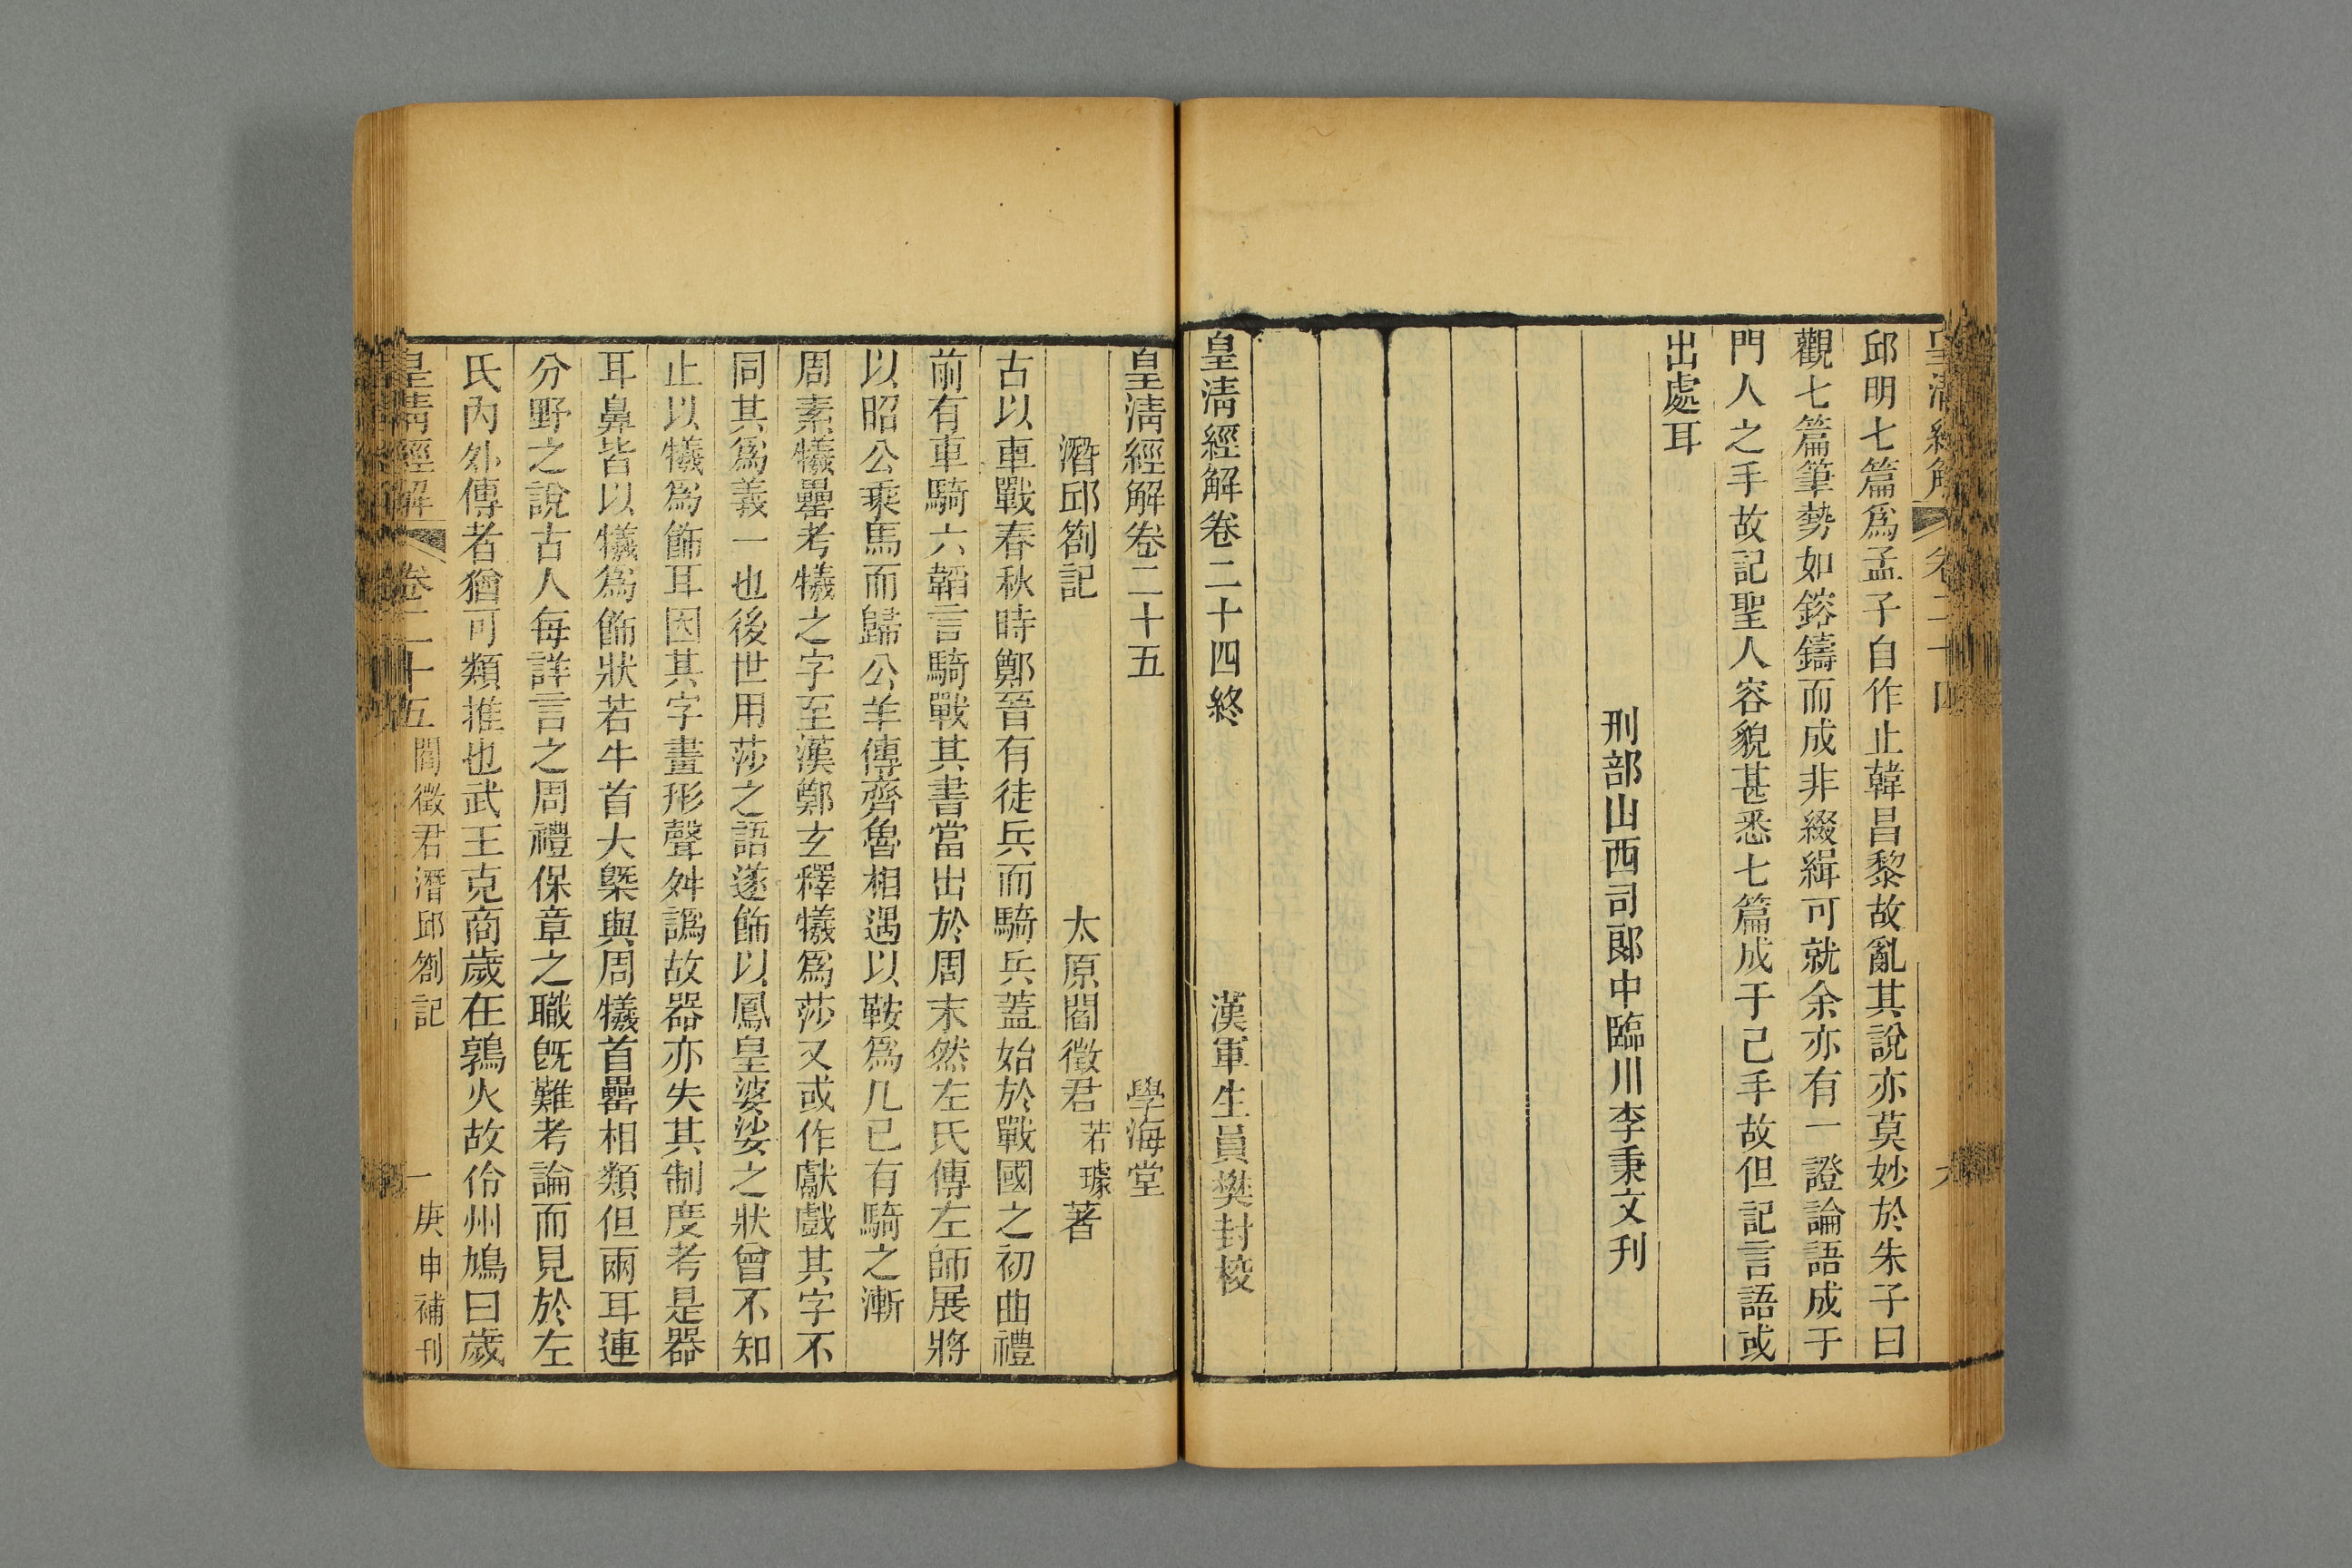 皇清經解 卷二十四 九
邱明七篇爲孟子自作止韓昌黎故亂其說亦莫妙於朱子曰
觀七篇筆勢如鎔鑄而成非綴緝可就余亦有一證論語成于
門人之手故記聖人容貌甚悉七篇成于己手故但記言語或
出處耳
刑部山西司郞中臨川李秉文刊
皇淸經解卷二十四終 漢軍生員樊封校
皇淸經解卷二十五 學海堂
潛邱劄記 太原閻徵君若璩著
古以車戰春秋時鄭晉有徒兵而騎兵蓋始於戰國之初曲禮
前有車騎六韜言騎戰其書當出於周末然左氏傳左師展將
以昭公乘馬而歸公羊傳齊魯相遇以鞍爲几已有騎之漸
周素犧罍考犧之字至漢鄭玄釋犧爲莎又或作獻戲其字不
同其爲義一也後世用莎之語遂飾以鳳皇婆娑之狀曾不知
止以犧爲飾耳因其字畫形聲舛譌故器亦失其制度考是器
耳鼻皆以犧爲飾狀若牛首大槩與周犧首罍相類但兩耳連
分野之說古人每詳言之周禮保章之職旣難考論而見於左
氏內外傳者猶可類推也武王克商歲在鶉火故伶州鳩曰歲
皇淸經解 卷二十五 閻徵君潛邱劄記 一 庚申補刊